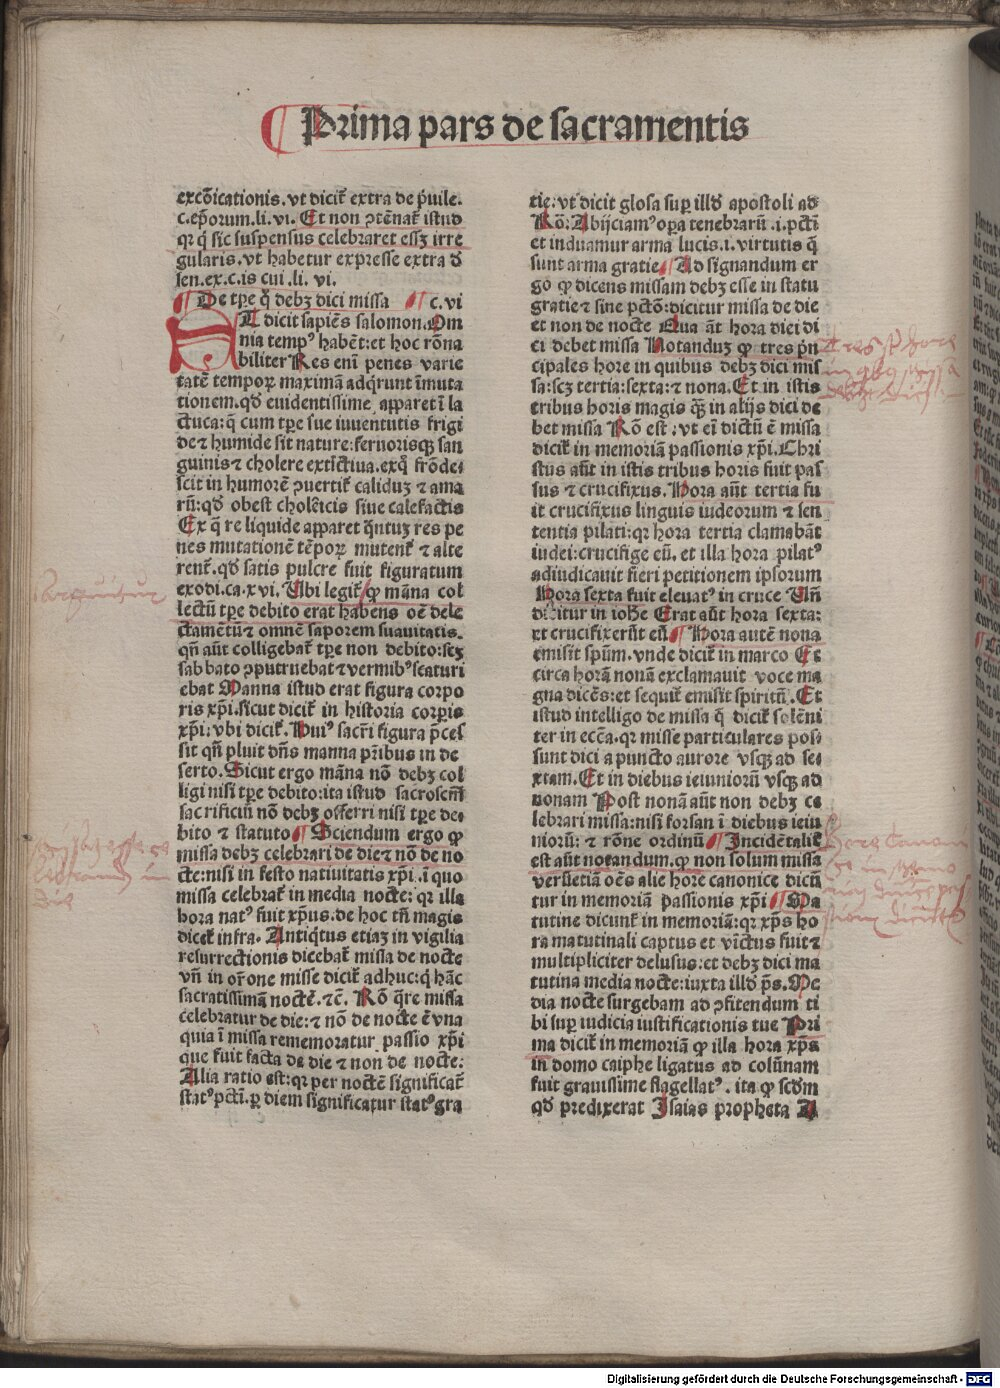 Prima pars de sacramentis
excōicationis. vt dicit᷑ extra de p̄uile.
c. ep̄orum. li. vi. Et non ꝯtēnat᷑ istud
qꝛ q̇ sic suspensus celebraret essꝫ irre
gularis. vt habetur expresse extra ð
sen. ex. c. is cui. li. vi.
¶ De tꝑe q̊ debꝫ dici missa ¶ c. vi
UT dicit sapiēs salomon. Om
nia tempꝰ habēt: et hoc rōna
biliter Res eni penes varie
tatē tempoꝝ maximā adqͥrunt īmuta
tionem. qd̛ euidentissime apparet ī la
ctuca: q̄ cum tꝑe sue iuuentutis frigi
de ⁊ humide sit nature: feruorisqꝫ san
guinis ⁊ cholere extīctiua. exq̊ frōde
scit in humorē ꝯuertit᷑ caliduꝫ ⁊ ama
rū: qd̛ obest cholēricis siue calefactis
Ex q̄ re liquide apparet qͣntuꝫ res pe
nes mutationē tēpoꝝ mutent᷑ ⁊ alte
rent᷑. qd̛ satis pulcre fuit figuratum
exodi. ca. xvi. Ubi legit᷑ ꝙ māna col
lectū tꝑe debito erat habens oē dele
ctamētū ⁊ omnē saporem suauitatis.
qn̄ aūt colligebat᷑ tꝑe non debito: scꝫ
sabbato ꝯputruebat ⁊ vermibꝰ scaturi
ebat Manna istud erat figura corpo
ris xp̄i. sicut dicit᷑ in historia corꝑis
xp̄i: vbi dicit᷑. Huiꝰ sacr̄i figura p̄ces
sit qn̄ pluit dn̄s manna pr̄ibus in de
serto. Sicut ergo māna nō debꝫ col
ligi nisi tꝑe debito: ita istud sacrosctm̄
sacrificiū nō debꝫ offerri nisi tꝑe de
bito ⁊ statuto ¶ Sciendum ergo ꝙ
missa debꝫ celebrari de die ⁊ nō de no
cte: nisi in festo natiuitatis xp̄i. ī quo
missa celebrat᷑ in media nocte: qꝛ illa
hora natꝰ fuit xp̄us. de hoc tn̄ magis
dicet᷑ infra. Antiqͥtus etiaꝫ in vigilia
resurrectionis dicebat᷑ missa de nocte
vn̄ in or̄one misse dicit᷑ adhuc: q̇ hāc
sacratissimā noctē. ⁊c̄. Rō qͣre missa
celebratur de die: ⁊ nō de nocte ē vna
quia ī missa rememoratur passio xp̄i
que fuit facta de die ⁊ non de nocte:
Alia ratio est: qꝛ per noctē significat᷑
statꝰ pctī. ꝑ diem significatur statꝰ gra
tie: vt dicit glosa suꝑ illd̛ apostoli ad
Ro: Abijciamꝰ oꝑa tenebrarū .i. pctī
et induamur arma lucis .i. virtutis q̄
sunt arma gratie ¶ Ad signandum er
go ꝙ dicens missam debꝫ esse in statu
gratie ⁊ sine pctō: dicitur missa de die
et non de nocte Qua aūt hora diei di
ci debet missa Notanduꝫ ꝙ tres pͥn
cipales hore in quibus debꝫ dici mis
sa: scꝫ tertia: sexta: ⁊ nona. Et in istis
tribus horis magis qͣꝫ in alijs dici de
bet missa Rō est: vt ei dictū ē missa
dicit᷑ in memoriā passionis xp̄i. Chri
stus aūt in istis tribus horis fuit pas
sus ⁊ crucifixus. Hora aūt tertia fu
it crucifixus linguis iudeorum ⁊ sen
tentia pilati: qꝛ hora tertia clamabāt
iudei: crucifige eū. et illa hora pilatꝰ
adiudicauit fieri petitionem ipsorum
Hora sexta fuit eleuatꝰ in cruce Un̄
dicitur in iohe Erat aūt hora sexta:
vt crucifixerūt eū ¶ Hora autē nona
emisit spūm. vnde dicit᷑ in marco Et
circa horā nonā exclamauit voce ma
gna dicēs: et sequit᷑ emisit spiritū. Et
istud intelligo de missa q̄ dicit᷑ solēni
ter in ecc̄a. qꝛ misse particulares pos
sunt dici a puncto aurore vsqꝫ ad se
xtam. Et in diebus ieiuniorū vsqꝫ ad
nonam Post nonā aūt non debꝫ ce
lebrari missa: nisi forsan ī diebus ieiu
niorū: ⁊ rōne ordinū ¶ Incidētalit᷑
est aūt notandum. ꝙ non solum missa
verūetiā oēs alie hore canonice dicūt
tur in memoriā passionis xp̄i ¶ Ma
tutine dicunt᷑ in memoriā: qꝛ xp̄s ho
ra matutinali captus et vīctus fuit ⁊
multipliciter delusus: et debꝫ dici ma
tutina media nocte: iuxta illd̛ p̄s. Me
dia nocte surgebam ad ꝯfitendum ti
bi suꝑ iudicia iustificationis tue Pri
ma dicit᷑ in memoriā ꝙ illa hora xp̄s
in domo caiphe ligatus ad colūnam
fuit grauissime flagellatꝰ. ita ꝙ scd̛m
qd̛ predixerat Isaias propheta A
Digitalisierung gefördert durch die Deutsche Forschungsgemeinschaft - DFG